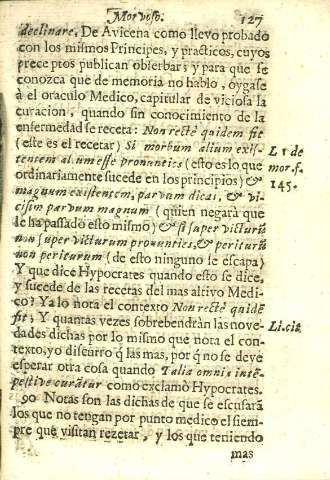 Morvoso. 127
declinare, De Avicena como llevo probado
con los mismos Principes, y practicos, cuyos
preceptos publican observar; y para que se
conozca que de memoria no hablo, oygase
à el oraculo Medico, capitular de viciosa la
curacion, quando sin conocimiento de la
enfermedad se receta: Non rectè quidem fit
(este es el recetar) Si morbum alium exis-
tentem alium esse pronunties (esto es lo que
ordinariamente sucede en los principios) &
magnum existentem, parvum dicas, & vi-
cissim parvum magnum (quien negarà que
le ha passado esto mismo) & si super victurũ
non super victurum pronunties, & periturũ
non periturum (de esto ninguno se escapa)
Y que dice Hypocrates quando esto se dice,
y sucede de las recetas del mas altivo Medi-
co? Ya lo nota el contexto Non rectè quidẽ
fit; Y quantas vezes sobrebendràn las nove-
dades dichas por lo mismo que nota el con-
texto, yo discurro q̃ las mas, por q̃ no se deve
esperar otra cosa quando Talia omnis intẽ-
pestive curatur como exclamò Hypocrates.
90 Notas son las dichas de que se escusarà
los que no tengan por punto medico el siem-
pre que visitan rezetar, y los que teniendo
mas
L 1 de
mor. f.
145.
Li. cit.